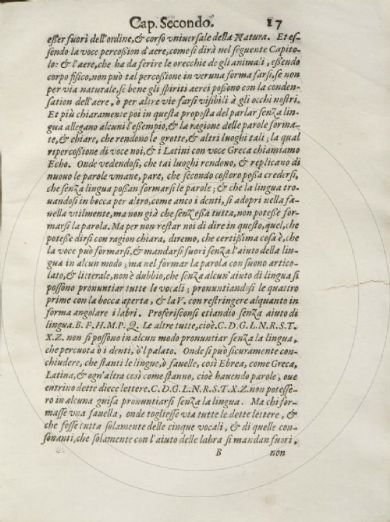 Cap. Secondo. 17
esser fuori dell'ordine, & corso vniuersale della Natura. Et es-
sendo la voce percossion d'aere, come si dirà nel seguente Capito-
lo: & l'aere, che ha da ferire le orecchie de gli animali, essendo
corpo fisico, non può tal percossione in veruna forma farsi, se non
per via naturale, se bene gli spiriti aerei possono con la conden-
sation dell'aere, ò per altre vie farsi visibili à gli occhi nostri.
Et più chiaramente poi in questa proposta del parlar senza lin-
gua allegano alcuni l'essempio, & la ragione delle parole forma-
te, & chiare, che rendono le grotte, & altri luoghi tali; la qual
repercossione di voce noi, & i Latini con voce Greca chiamiamo
Echo. Onde vedendosi, che tai luoghi rendono, & replicano di
nuouo le parole vmane, pare, che secondo costoro possa credersi,
che senza lingua possan formarsi le parole; & che la lingua tro-
uandosi in bocca per altro, come anco i denti, si adopri nella fa-
uella vtilmente, ma non già che senz'essa tutta, non potesse for-
marsi la parola. Ma per non restar noi di dire in questo, quel, che
potesse dirsi con ragion chiara, diremo, che certissima cosa è, che
la voce può formarsi, & mandarsi fuori senza l'aiuto della lin-
gua in alcun modo; ma nel formar la parola con suono artico-
lato, & litterale, non è dubbio, che senza alcun'aiuto di lingua si
possono pronuntiar tutte le vocali; pronuntiandosi le quattro
prime con la bocca aperta, & la V. con restringere alquanto in
forma angolare i labri. Proferisconsi etiandio senza aiuto di
lingua. B. F. H. M. P. Q. Le altre tutte, cioè. C. D. G. L. N. R. S. T.
X. Z. non si possono in alcun modo pronuntiar senza la lingua,
che percuota ò i denti, ò'l palato. Onde si può sicuramente con-
chiudere, che stanti le lingue, ò fauelle, così Ebrea, come Greca,
Latina, & ogn'altra così come stanno, cioè hauendo parole, oue
entrino dette diece lettere. C. D. G. L. N. R. S. T. X. Z. non potesse-
ro in alcuna guisa pronuntiarsi senza la lingua. Ma chi for-
masse vna fauella, onde togliesse via tutte le dette lettere, &
che fosse tutta solamente delle cinque vocali, & di quelle con-
sonanti, che solamente con l'aiuto delle labra si mandan fuori,
B non